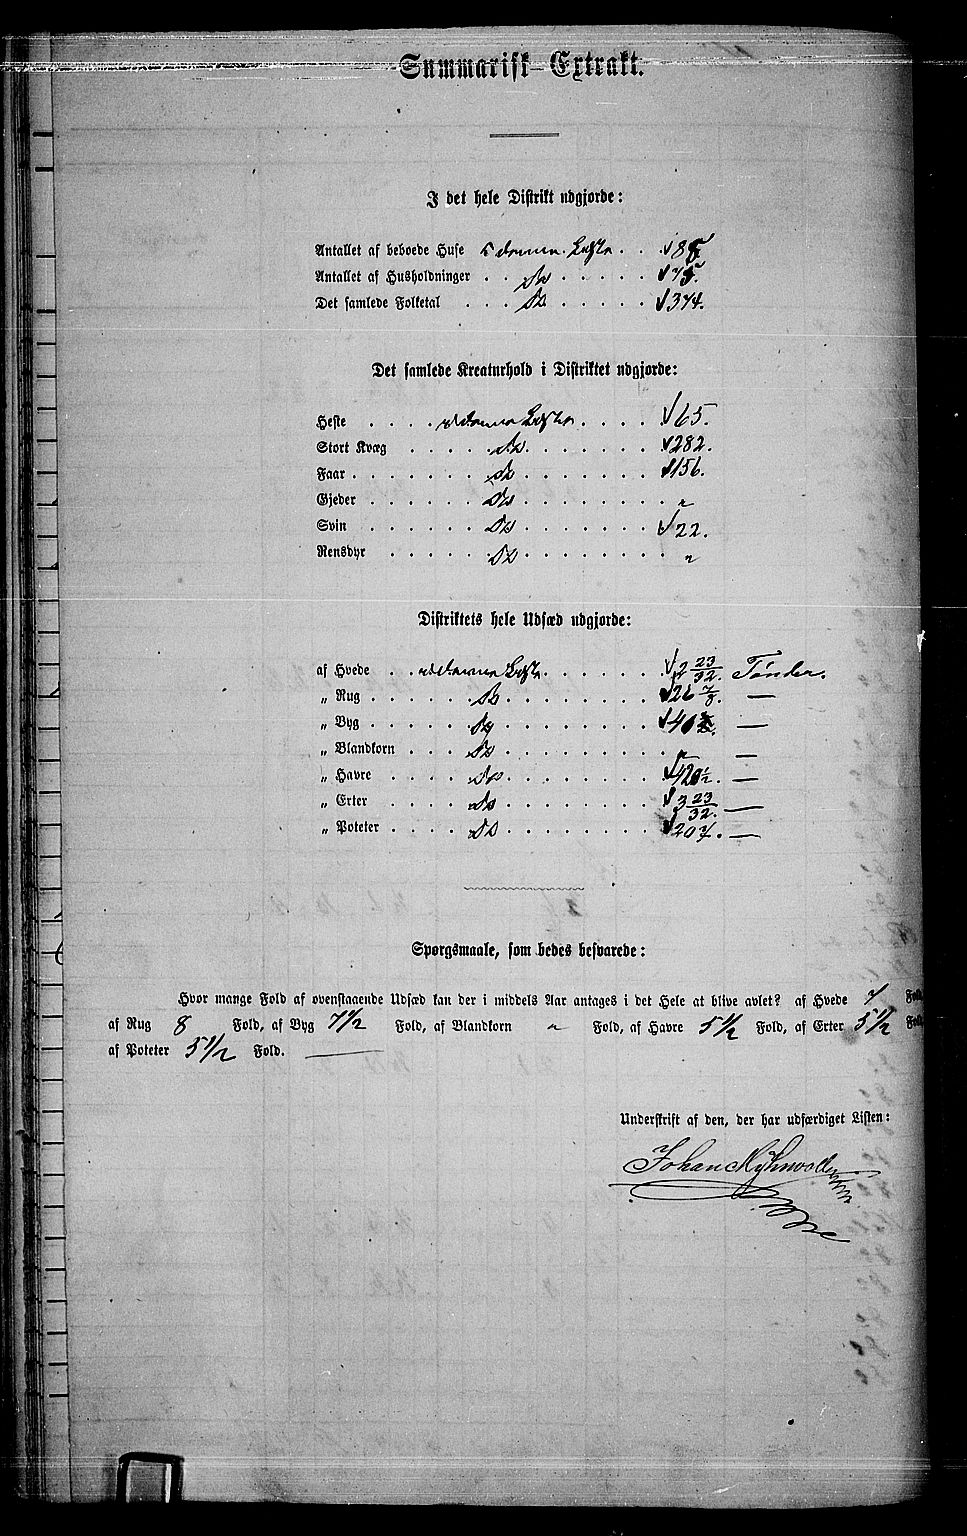 Summarisk Extrakt.
I det hele Distrikt udgjorde:
Antallet af beboede Huse i denne Liste . . 85
Antallet af Husholdninger . . Do . . . . . 75.
Det samlede Folketal . . . Do . . . . . 374.
Det samlede Kreaturhold i Distriktet udgjorde:
Heste . . . . i denne Liste . . . . 65.
Stort Kvæg . . . . Do . . . . . . 282.
Faar . . . . . . Do . . . . . . 156.
Gjeder . . . . . Do . . . . . . "
Svin . . . . . Do . . . . . . 22.
Rensdyr . . . . Do . . . . . . "
Distriktets hele Udsæd udgjorde:
af Hvede . . i denne Liste . . . . . 2 23/32. Tønder.
„ Rug . . . . . Do . . . . . . 26 7/8. —
„ Byg . . . . . Do . . . . . . —
„ Blandkorn . . . Do . . . . . . " —
„ Havre . . . . Do . . . . . . 420 1/2. —
„ Erter . . . . Do . . . . . . 3 23/32. —
„ Poteter . . . . Do . . . . . . —
Spørgsmaale, som bedes besvarede:
Hvor mange Fold af ovenstaaende Udsæd kan der i middels Aar antages i det Hele at blive avlet? af Hvede 7 Fold,
af Rug 8 Fold, af Byg 7 1/2 Fold, af Blandkorn " Fold, af Havre 5 1/2 Fold, af Erter 5 1/2 Fold,
af Poteter 5 1/2 Fold. —
Underskrift af den, der har udfærdiget Listen:
Johan